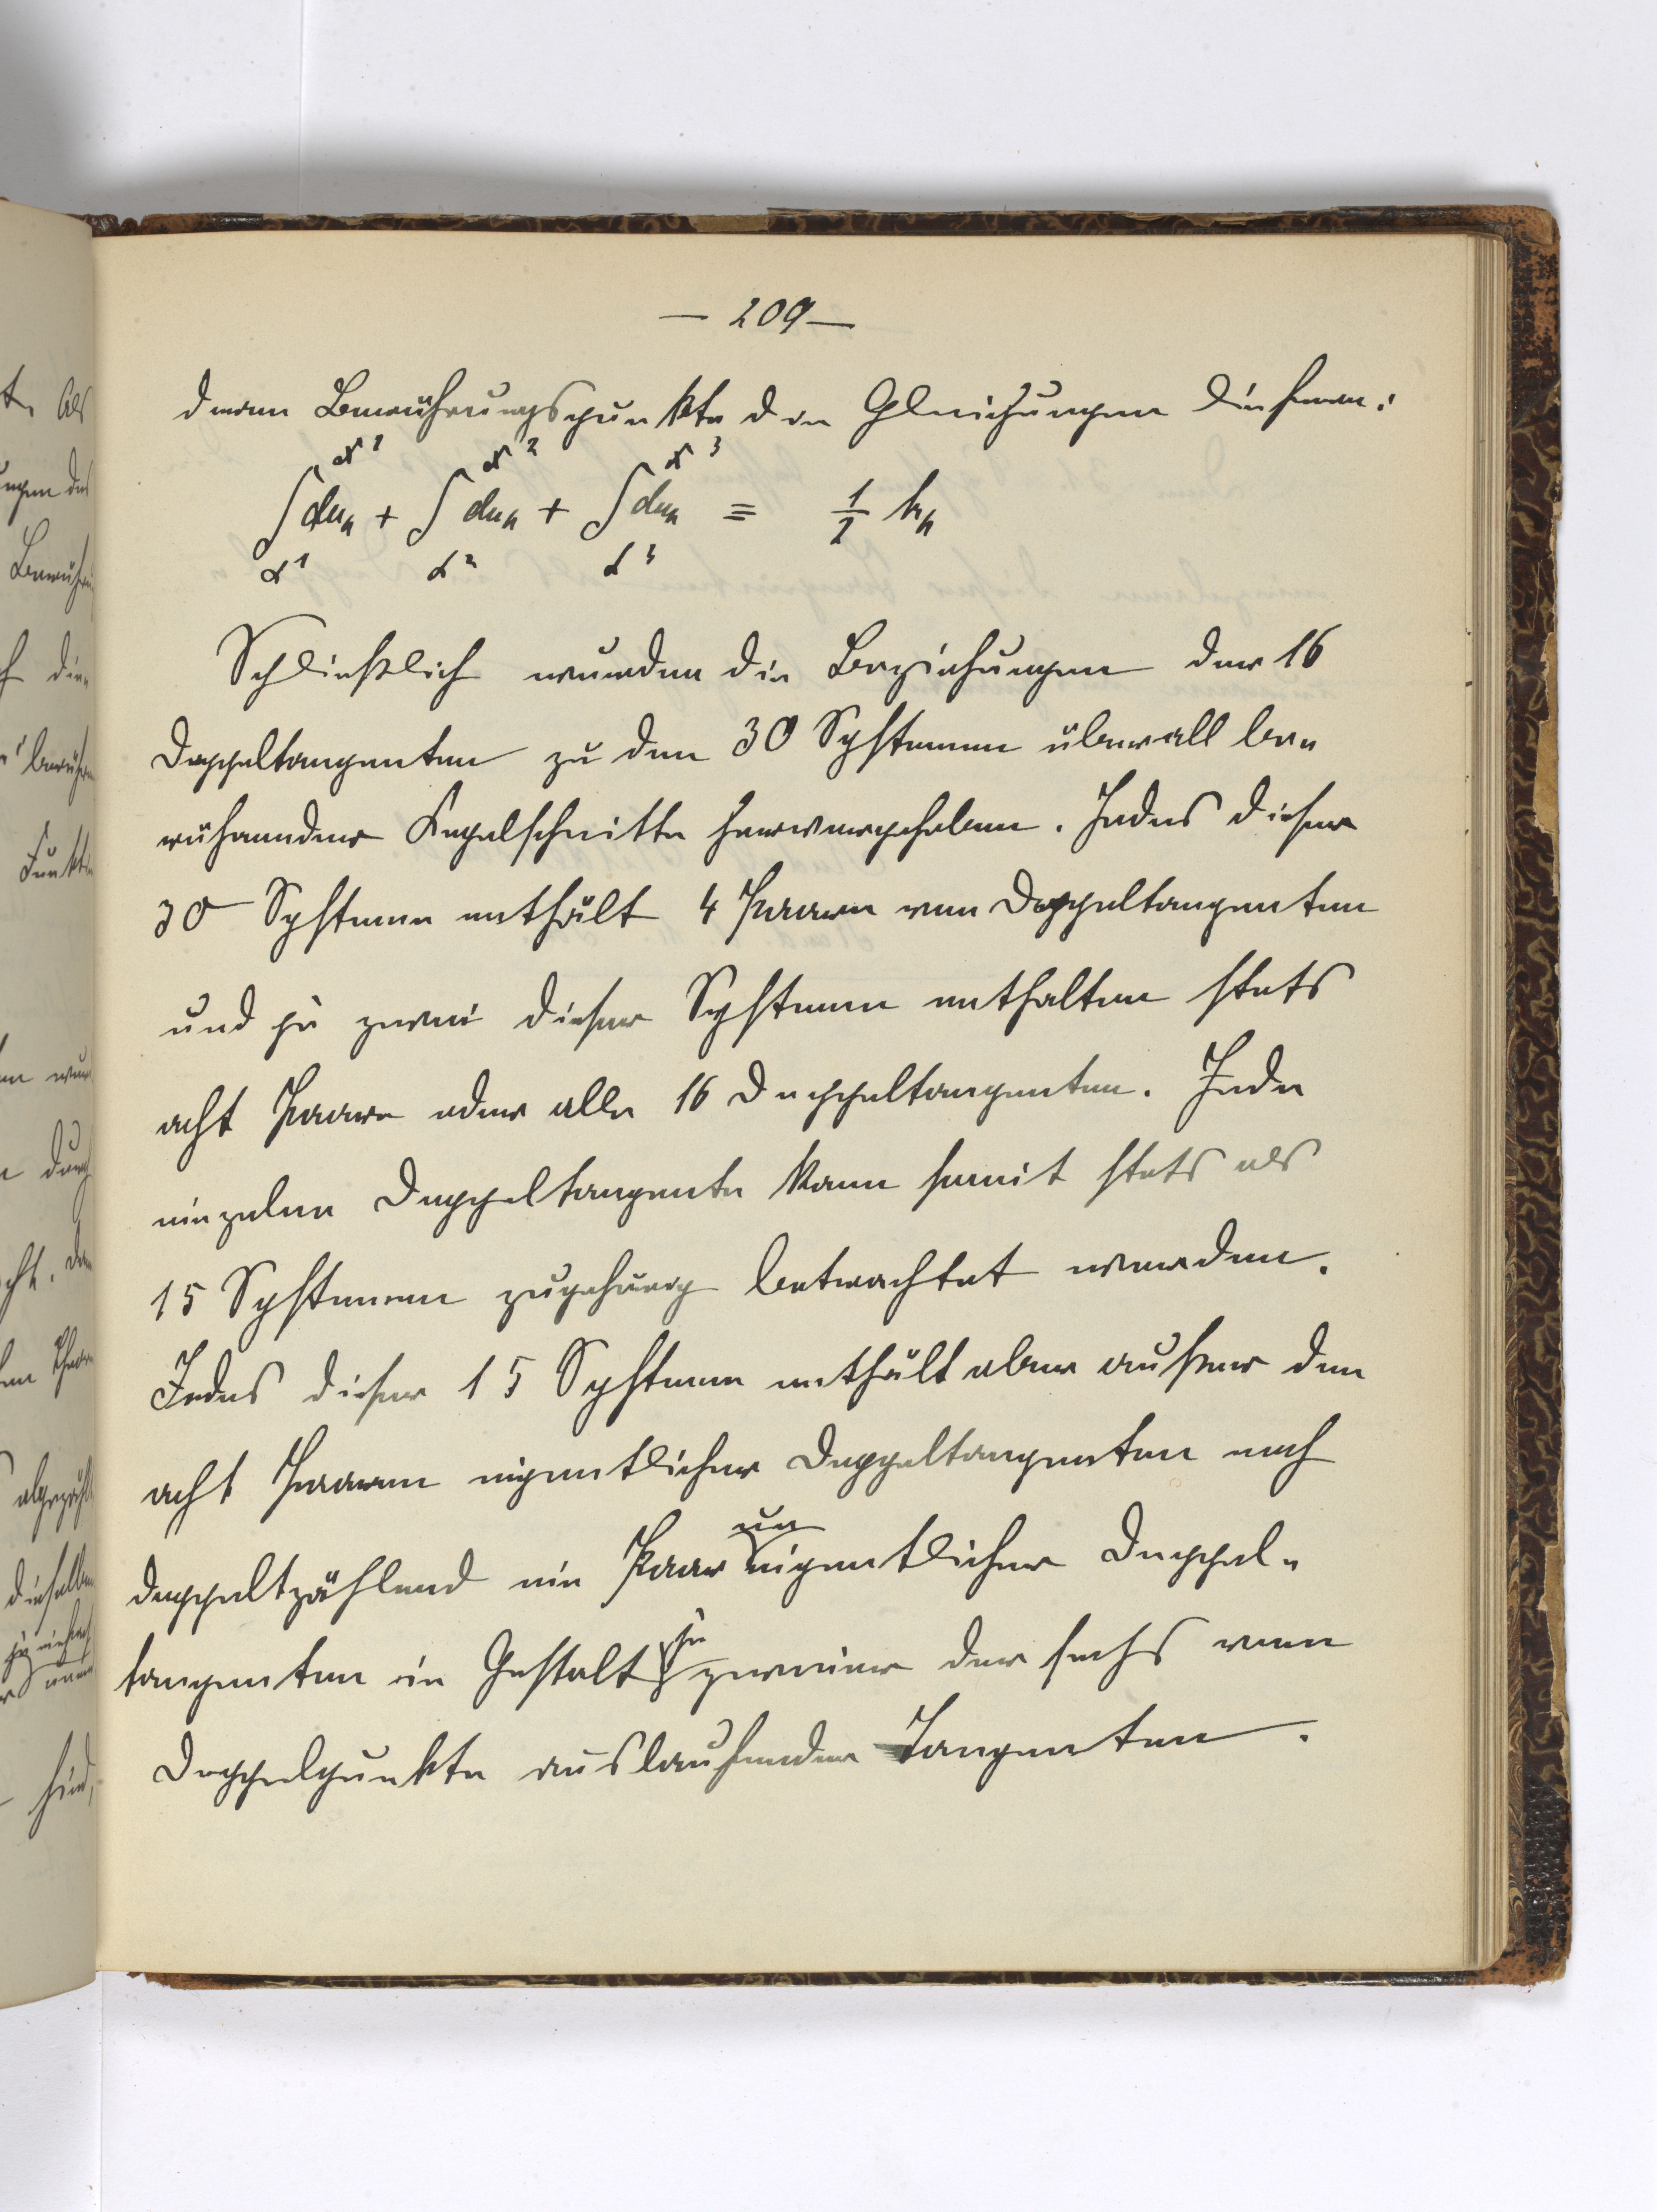 — 209 —
deren Berührungspunkte den Gleichungen dienen:
∫_{α1}^{x1} du_k + ∫_{α2}^{x2} du_k + ∫_{α3}^{x3} du_k ≡ 1/2 h_k
Schließlich wurden die Beziehungen der 16
Doppeltangenten zu den 30 Systemen überall be-
rührender Kegelschnitte hervorgehoben. Jedes dieser
30 Systeme enthält 4 Paare von Doppeltangenten
und je zwei dieser Systeme enthalten stets
acht Paare oder alle 16 Doppeltangenten. Jede
einzelne Doppeltangente kann somit stets als
15 Systemen zugehörig betrachtet werden.
Jedes dieser 15 Systeme enthält aber außer den
acht Paaren eigentlicher Doppeltangenten noch
doppeltzählend ein Paar uneigentlicher Doppel-
tangenten in Gestalt je zweier der sechs vom
Doppelpunkte auslaufenden Tangenten.
t. Als
Berühr
f die
berühr
Funkte
durch
abgezählt
dieselben
sind,